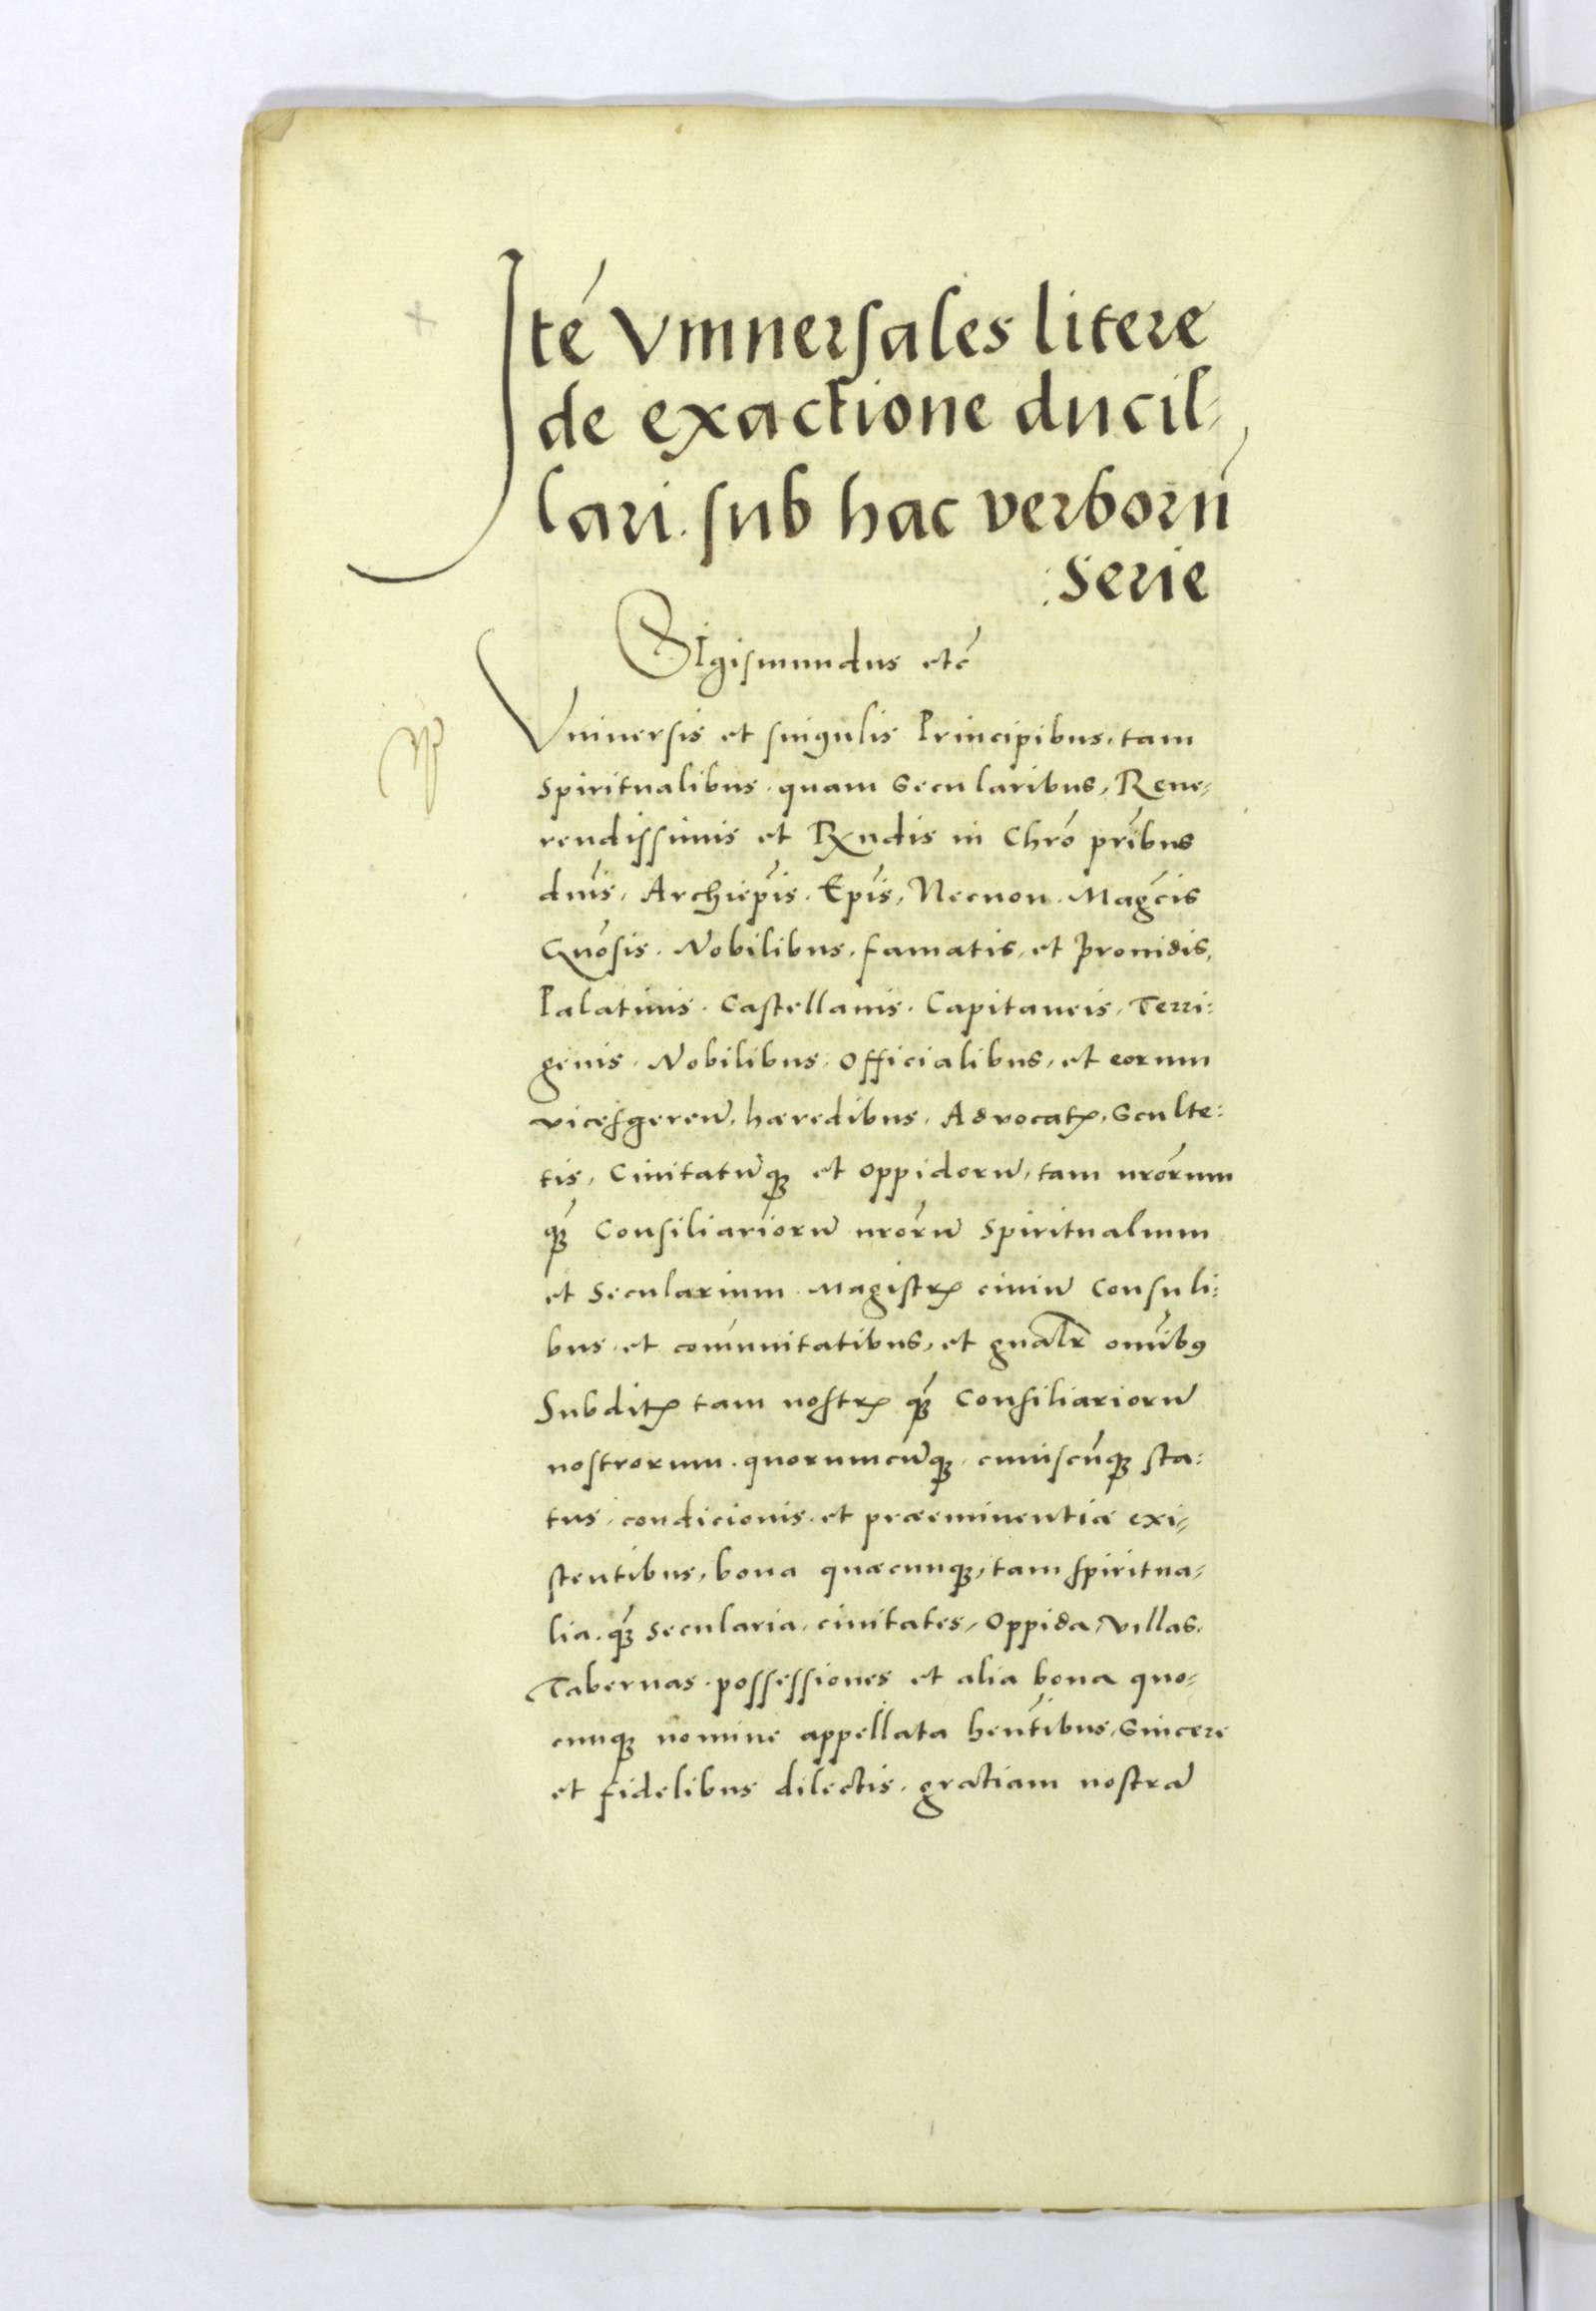 Itē Vniuersales litere
de exactione ducil-
lari. sub hac verborū
Serie
Sigismundus etc̄
Vniuersis et singulis Principibus, tam
Spiritualibus. quam Secularibus, Reue-
rendissimis et Rx̄ndis in Chrō pribus̄
dn̄is, Archiep̄is. Ep̄is, Necnon. Mag̃cis
Gn̄osis. Nobilibus. famatis, et Prouidis,
Palatinis. Castellanis. Capitaneis, Terri:
genis. Nobilibus. Officialibus, et eorum
vicesgeren̄. hæredibus. Aduocatꝭ. Sculte:
tis, Ciuitatūqꝫ et oppidorū, tam nr̄orum
qꝫ̄ Consiliariorū nr̄orū Spiritualium
et Secularium. Magistrꝭ ciuiū Consuli:
bus. et com̄unitatibus, et gnālr̄ omībꝰ
Subditꝭ tam nostrꝭ qꝫ̄ Consiliariorū
nostrorum. quorumcūqꝫ. cuiuscūqꝫ sta:
tus. condicionis. et præeminentiæ exi-
stentibus, bona quæcunqꝫ, tam spiritua-
lia. qꝫ̄ Secularia. ciuitates, Oppida, villas.
Tabernas. possessiones et alia bona quo-
cunqꝫ nomine appellata hen̄tibus, Sincere
et fidelibus dilectis. gratiam nostrā